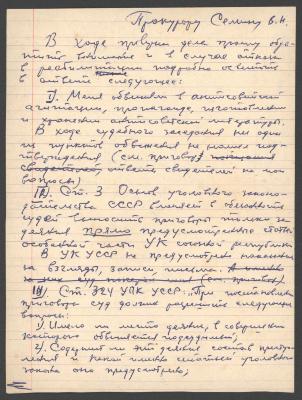 Прокурору Семину В.И.
В ходе проверки дела прошу обра-
тить внимание и в случае отказа
в реабилитации подробно осветить
в ответе следующее:
I). Меня обвинили в антисоветской
агитации, пропаганде, изготовлении
и хранении антисоветской литературы.
В ходе судебного заседания ни один
из пунктов обвинения не нашел под-
тверждения (см. приговор,
ответы свидетелей на
вопросы)
II). Ст. 3 Основ уголовного законо-
дательства СССР вменяет в обязанность
судей выносить приговоры только за
деяния прямо предусмотренные статьями
особенной части УК союзной республики
В УК УССР не предусмотрено наказание
за взгляды, записи, письма.
III). Ст. 324 УПК УССР: "При постановлении
приговора суд должен разрешить следующие
вопросы:
1) Имело ли место деяние, в совершении
которого обвиняется подсудимый;
2) Содержит ли это деяние состав преступ-
ления и какой именно статьей уголовного
закона оно предусмотрено;